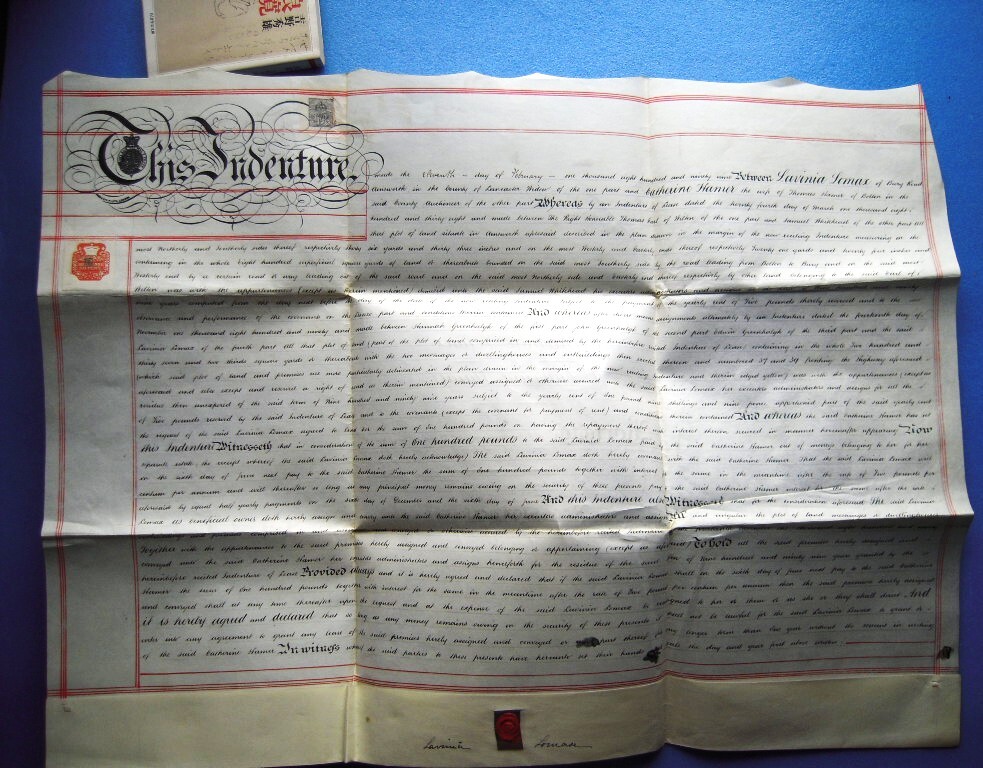 吉野秀雄
This Indenture.
made the eleventh day of February one thousand eight hundred and ninety nine Between Lavinia Lomax of Bury Road
Ainsworth in the County of Lancaster Widow of the one part and Catherine Hamer the wife of Thomas Hamer of Bolton in the
said County Auctioneer of the other part Whereas by an Indenture of Lease dated the day of March one thousand eight
hundred and thirty eight and made between the Right Honorable Thomas Earl of Wilton of the one part and Samuel Whitehead of the other part All
that plot of land situate in Ainsworth aforesaid described in the plan drawn in the margin of the now reciting Indenture measuring on the
most Northerly and Southerly sides thereof respectively thirty six yards and thirty three inches and on the most Westerly and sides thereof respectively twenty six yards and
containing in the whole Eight hundred superficial square yards of land is thereabouts bounded on the said most Southerly side by the road leading from Bolton to Bury and on the said most
Westerly end by a certain road or way leading out of the said road and on the said most Northerly side and end thereof respectively by other land belonging to the said Earl of
Wilton was with the appurtenances (except as therein mentioned) demised unto the said Samuel Whitehead his executors
of the date of the now reciting Indenture subject to the payment of the yearly rent of Five pounds thereby reserved and to the
observance and performance of the covenants on the Lessees part and conditions therein contained And whereas after
November one thousand eight hundred and ninety and made between Hannah Greenhalgh of the first part John Greenhalgh of the second part Edwin Greenhalgh of the third part and the said
Lavinia Lomax of the fourth part All that plot of land (part of the plot of land comprised in and demised by the hereinbefore recited Indenture of Lease) containing in the whole Two hundred and
thirty seven and two thirds square yards or thereabouts with the two messuages or dwellinghouses and outbuildings then erected thereon and numbered 37 and 39 fronting the Highway aforesaid
(which said plot of land and premises are more particularly delineated in the plan drawn in the margin of the now reciting Indenture and therein edged yellow) was with the appurtenances (except as
aforesaid and also except and reserved a right of road as therein mentioned) conveyed assigned or otherwise assured unto the said Lavinia Lomax her executors administrators and assigns for all the
residue then unexpired of the said term of Nine hundred and ninety nine years subject to the yearly rent of One pound nine shillings and nine pence apportioned part of the said yearly rent
of Five pounds reserved by the said Indenture of Lease and to the covenants (except the covenant for payment of rent) and conditions therein contained And whereas the said Catherine Hamer has at
the request of the said Lavinia Lomax agreed to lend her the sum of One hundred pounds on having the repayment thereof with interest thereon secured in manner hereinafter appearing Now
this Indenture Witnesseth that in consideration of the sum of One hundred pounds to the said Lavinia Lomax paid by the said Catherine Hamer out of moneys belonging to her for her
separate estate the receipt whereof the said Lavinia Lomax doth hereby acknowledge The said Lavinia Lomax doth hereby covenant with the said Catherine Hamer That the said Lavinia Lomax will
on the sixth day of June next pay to the said Catherine Hamer the sum of One hundred pounds together with interest for the same in the meantime after the rate of Five pounds per
centum per annum and will thereafter so long as any principal money remains owing on the security of these presents pay to the said Catherine Hamer interest for the same after the rate
aforesaid by equal half yearly payments on the sixth day of December and the sixth day of June And this Indenture also Witnesseth that for the consideration aforesaid The said Lavinia
Lomax as beneficial owner doth hereby assign and convey unto the said Catherine Hamer her executors administrators and assigns All and singular the plot of land messuages or dwellinghouses
Together with the appurtenances to the said premises hereby assigned and conveyed belonging or appertaining (except as aforesaid) To hold all the said premises hereby assigned and
conveyed unto the said Catherine Hamer her executors administrators and assigns henceforth for the residue of the said term of Nine hundred and ninety nine years granted by the
hereinbefore recited Indenture of Lease Provided Always and it is hereby agreed and declared that if the said Lavinia Lomax shall on the sixth day of June next pay to the said Catherine
Hamer the sum of One hundred pounds together with interest for the same in the meantime after the rate of Five pounds per centum per annum then the said premises hereby assigned
and conveyed shall at any time thereafter upon the request and at the expense of the said Lavinia Lomax be reassigned to her or them or as she or they shall direct And
it is hereby agreed and declared that so long as any money remains owing on the security of these presents it shall not be lawful for the said Lavinia Lomax to grant or
enter into any agreement to grant any lease of the said premises hereby assigned and conveyed or part thereof for any longer term than One year without the consent in writing
of the said Catherine Hamer In witness whereof the said parties to these presents have hereunto set their hands and seals the day and year first above written
Lavinia Lomax